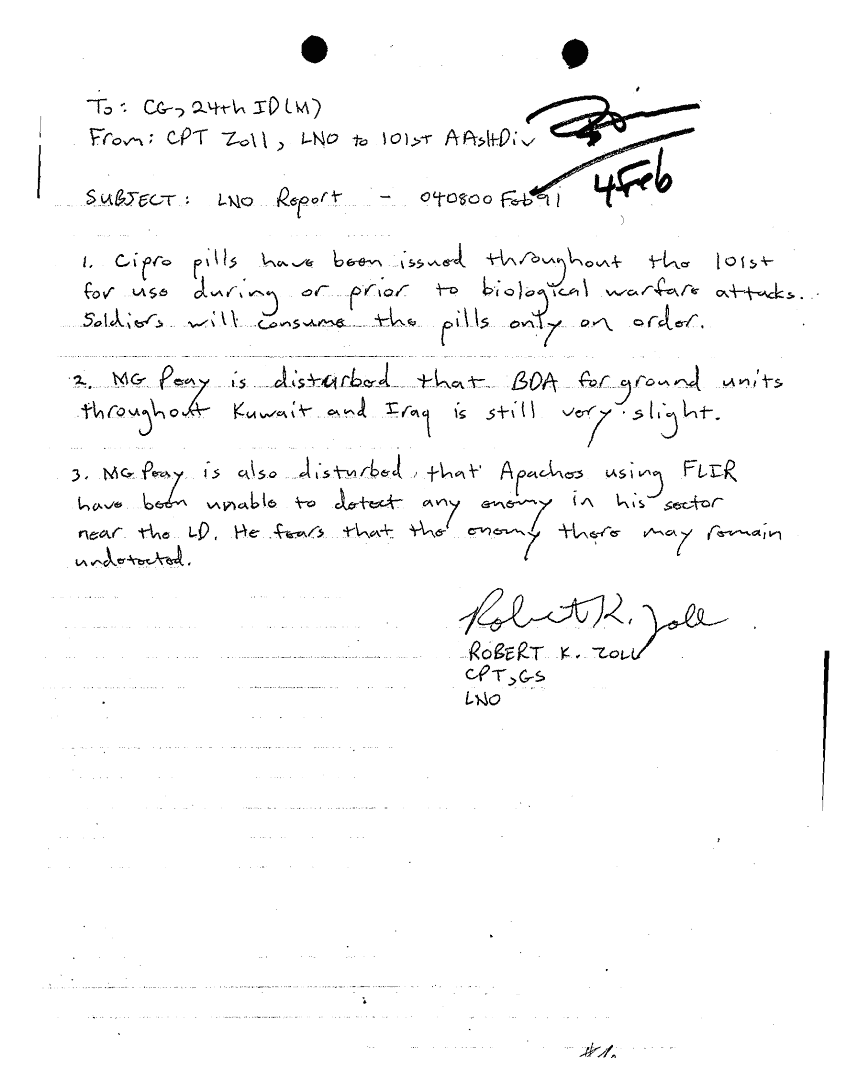 To: CG, 24th ID(M)
From: CPT Zoll, LNO to 101st AAsltDiv
4 Feb
SUBJECT: LNO Report - 040800 Feb 91
1. Cipro pills have been issued throughout the 101st
for use during or prior to biological warfare attacks.
Soldiers will consume the pills only on order.
2. MG Peay is disturbed that BDA for ground units
throughout Kuwait and Iraq is still very slight.
3. MG Peay is also disturbed that Apaches using FLIR
have been unable to detect any enemy in his sector
near the LD. He fears that the enemy there may remain
undetected.
Robert K. Zoll
ROBERT K. ZOLL
CPT, GS
LNO
#1.